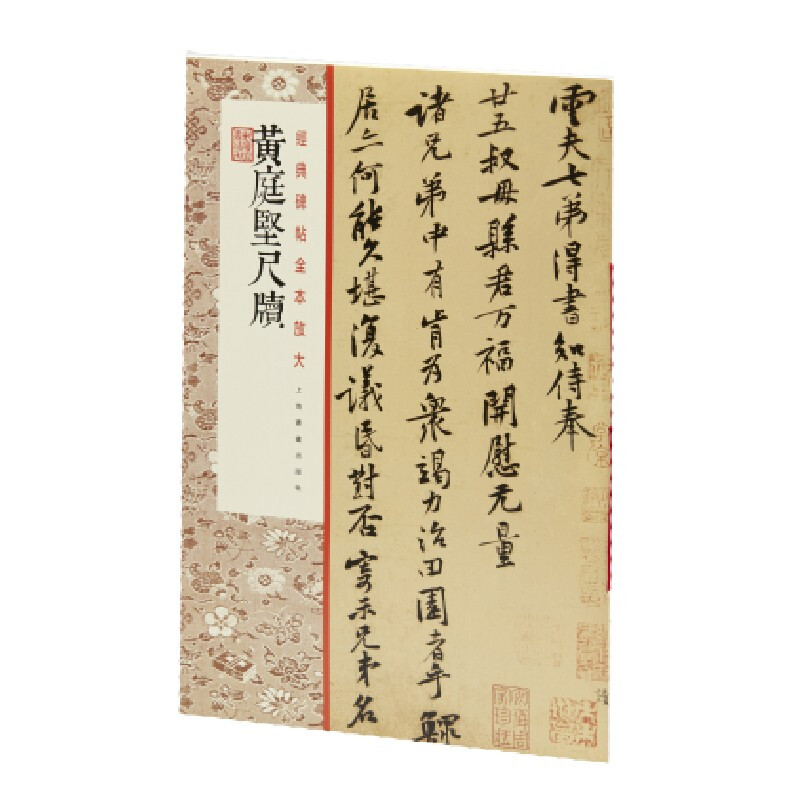 雲夫七弟得書知侍奉
廿五叔母縣君万福開慰无量
諸兄弟中有肯為衆竭力治田園者乎鰥
居亦何能久堪復議昏對否寄示兄弟名
經典碑帖全本放大
上海書畫出版社
黃庭堅尺牘